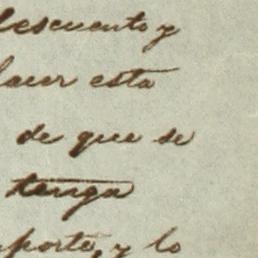 descuento y
hacer esta
de que se
tenga
mporte, y lo